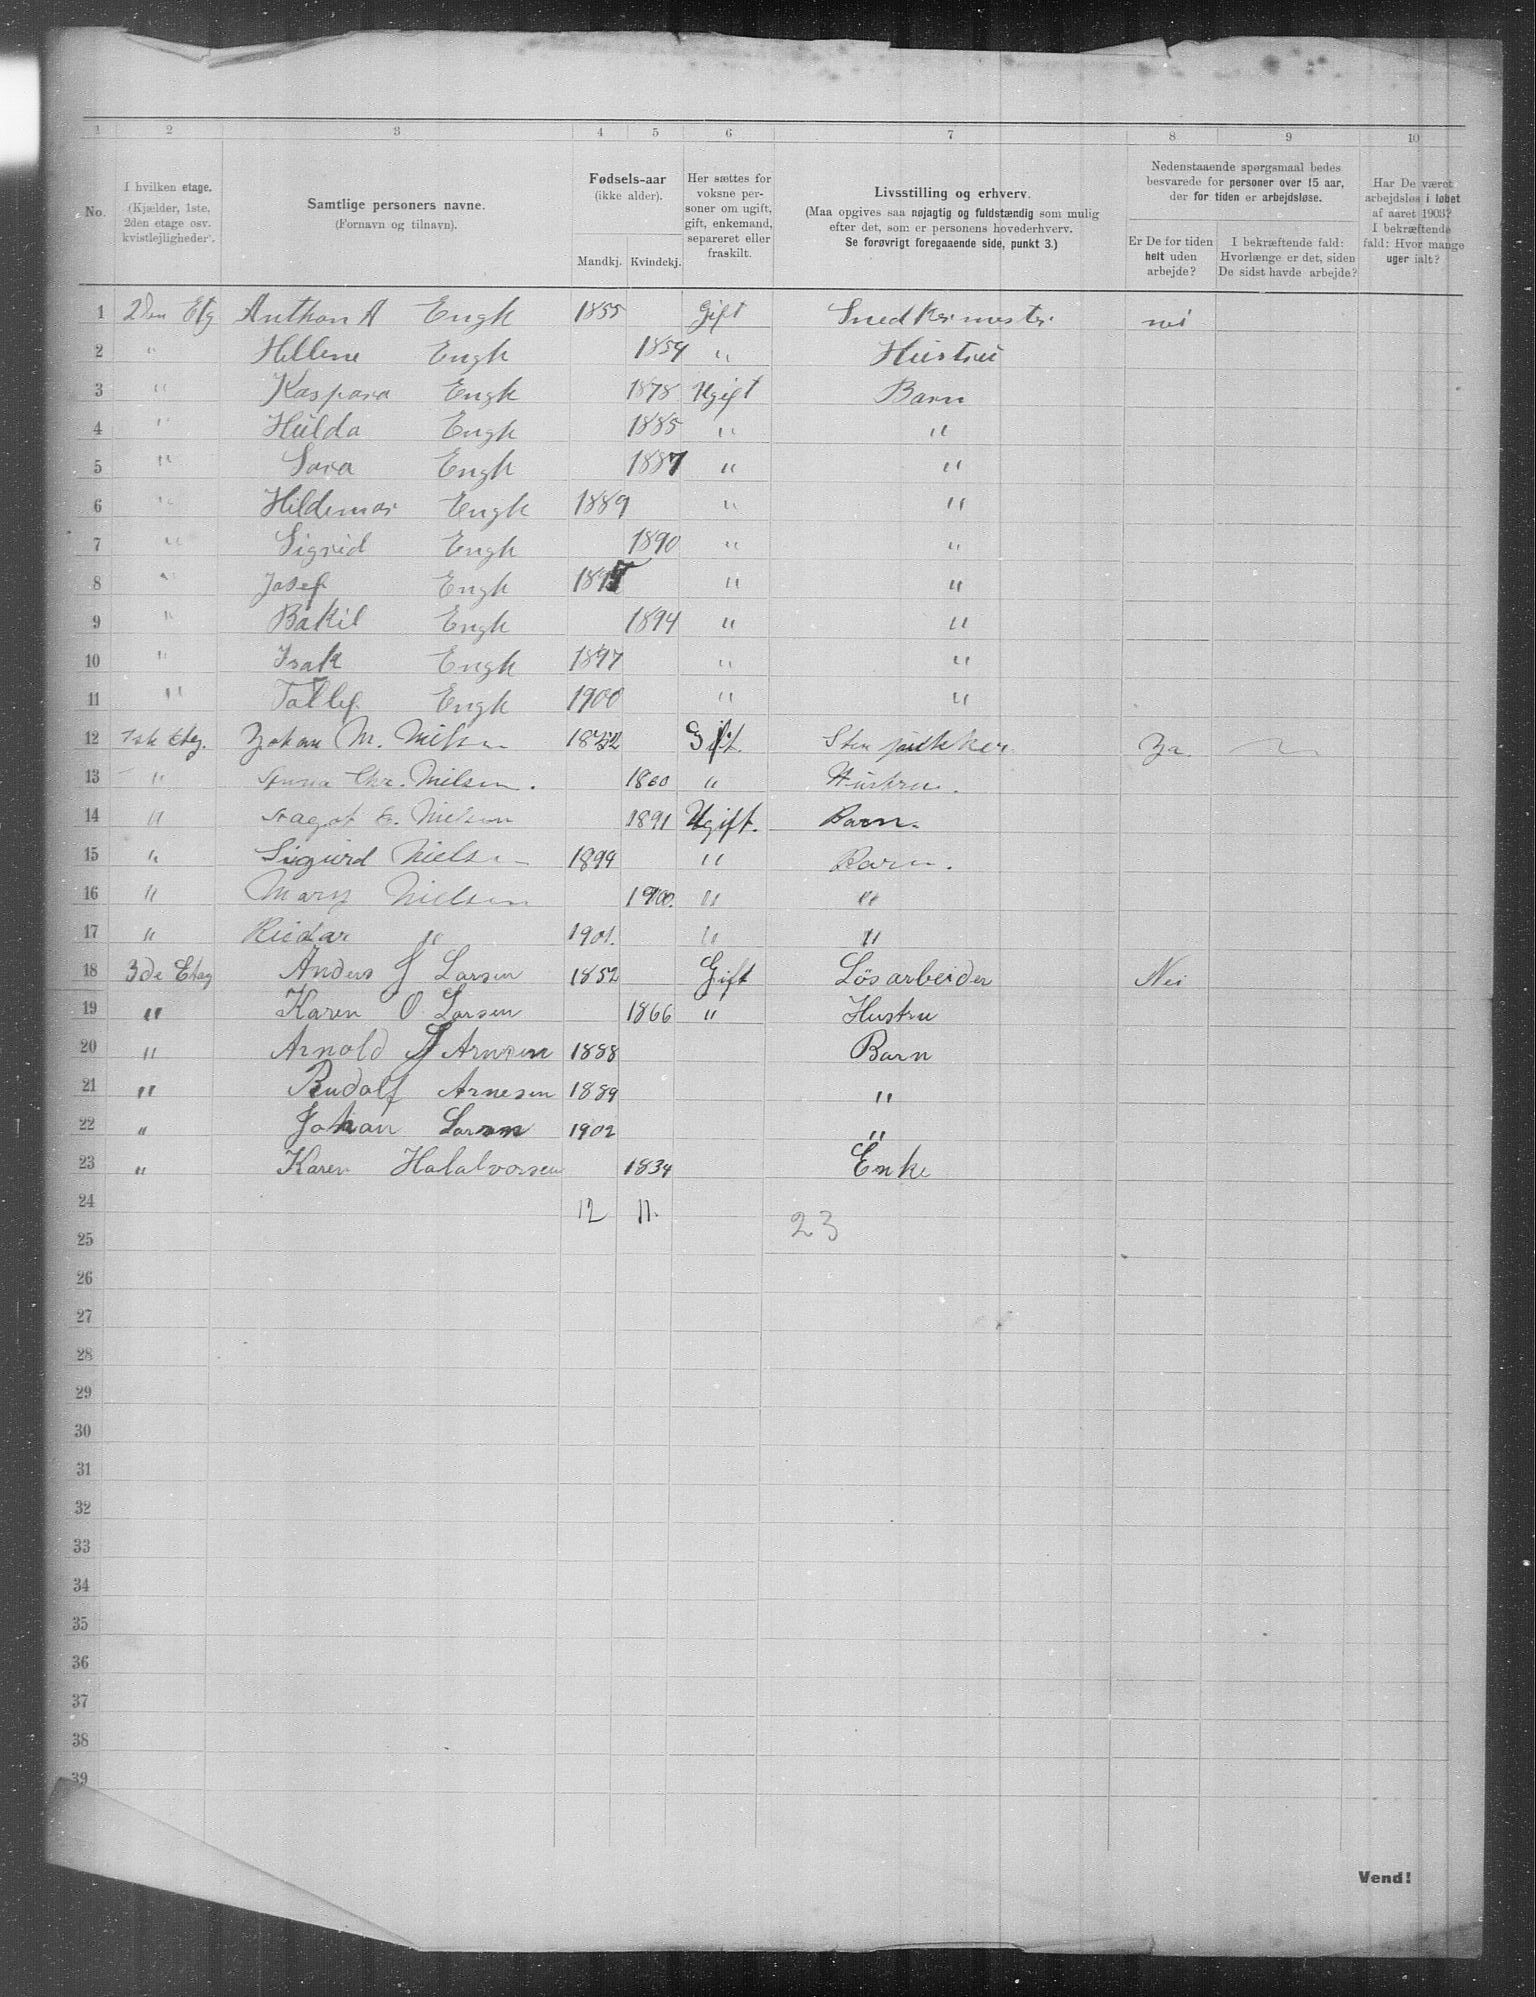 1 2 3 4 5 6 7 8 9 10
No.
I hvilken etage.
(Kjælder, 1ste,
2den etage osv.
kvistlejligheder).
Samtlige personers navne.
(Fornavn og tilnavn).
Fødsels-aar
(ikke alder).
Mandkj. Kvindekj.
Her sættes for
voksne per-
soner om ugift,
gift, enkemand,
separeret eller
fraskilt.
Livsstilling og erhverv.
(Maa opgives saa nøjagtig og fuldstændig som mulig
efter det, som er personens hovederhverv.
Se forøvrigt foregaaende side, punkt 3.)
Nedenstaaende spørgsmaal bedes
besvarede for personer over 15 aar,
der for tiden er arbejdsløse.
Er De for tiden
helt uden
arbejde?
I bekræftende fald:
Hvorlænge er det, siden
De sidst havde arbejde?
Har De været
arbejdsløs i løbet
af aaret 1903?
I bekræftende
fald: Hvor mange
uger ialt?
1 2den Etg Anthon A Engh 1855 Gift Snedkermester nei
2 " Hellene Engh 1854 " Hustru
3 " Kaspara Engh 1878 Ugift Barn
4 " Hulda Engh 1885 " "
5 " Sara Engh 1887 " "
6 " Hildemar Engh 1889 " "
7 " Sigrid Engh 1890 " "
8 " Josef Engh " "
9 " Bakil Engh 1894 " "
10 " Isak Engh 1897 " "
11 " Tollef Engh 1900 " "
12 1ste Etg. Johan M. Nilsen Gift. Sten pukker. Ja.
13 " Chr. Nilsen. 1860 " Hustru.
14 " Nielsen 1891 Ugift. Barn.
15 " Sigurd Nielsen 1894 " Barn.
16 " Mary Nielsen 1900. " "
17 " Riedar " 1901. " "
18 3de Etag Anders J Larsen 1852 Gift Lösarbeider Nei
19 " Karen O Larsen 1866 " Hustru
20 " Arnold J Arnesen 1888 Barn
21 " Rudolf Arnesen 1889 "
22 " Johan Larsen 1902 "
23 " Karen Halalvorsen 1834 Enke
24 12 11.
23
25
26
27
28
29
30
31
32
33
34
35
36
37
38
39
Vend!